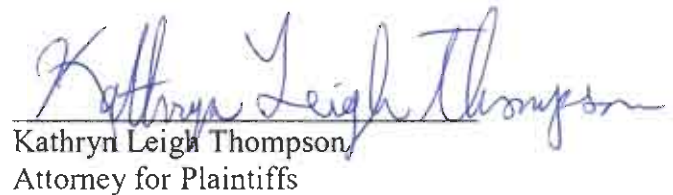 Kathryn Leigh Thompson
Kathryn Leigh Thompson
Attorney for Plaintiffs